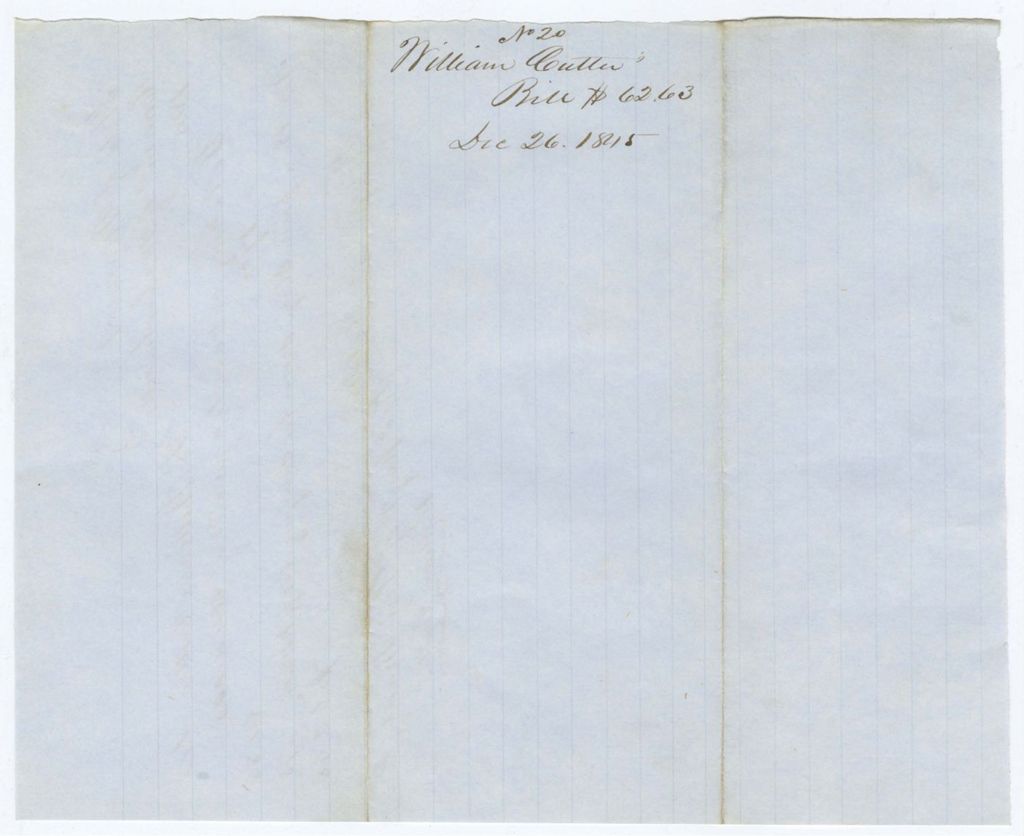 No 20
William Cutter's
Bill $ 62.63
Dec 26. 1845